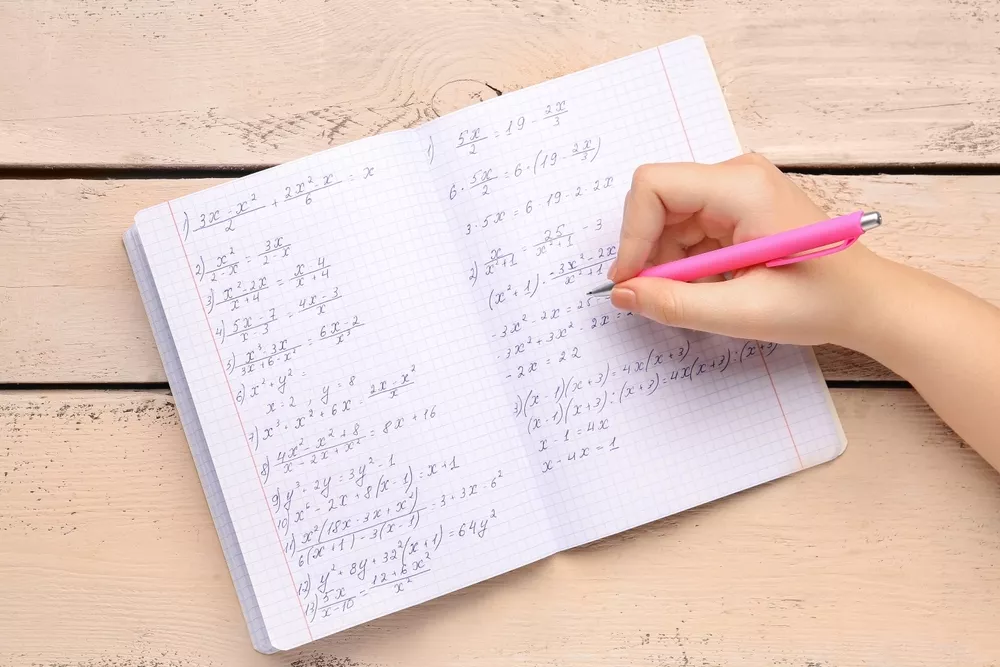 1) (3x - x²)/2 + (2x² - x)/6 = x
2) x²/(2 - x) = 3x/(2 - x)
3) (x² - 2x)/(x + 4) = (x - 4)/(x + 4)
4) (5x - 7)/(x - 3) = (4x - 3)/x
5) (x³ - 3x)/(3x + 6 - x²) = (6x - 2)/x³
6) x² + y² =
x = 2, y = 8
7) x³ + x² + 6x = (2x - x²)/x
8) (4x² - x² + 8)/(x - 2x + x²) = 8x + 16
9) y³ - 2y = 3y² - 1
10) x² - 2x + 8(x - 1) = x + 1
11) x²(18x - 3x + x²)/(6(x + 1) - 3(x - 1)) = 3 + 3x - 6²
12) y² + 8y + 32²(x + 1) = 64y²
13) 5x/(x - 10) = (12 + 6x²)/x²
1) 5x/2 = 19 - 2x/3
6 · 5x/2 = 6 · (19 - 2x/3)
3 · 5x = 6 · 19 - 2 · 2x
2) x/(x² + 1) = 25/(x² + 1) - 3
(x² + 1) · (-3x² - 2x)/(x² + 1)
-3x² - 2x = 25
-3x² + 3x² - 2x =
-2x = 22
3) (x - 1)(x + 3) = 4x(x + 3)
(x - 1)(x + 3) : (x + 3) = 4x(x + 3) : (x + 3)
x - 1 = 4x
x - 4x = 1